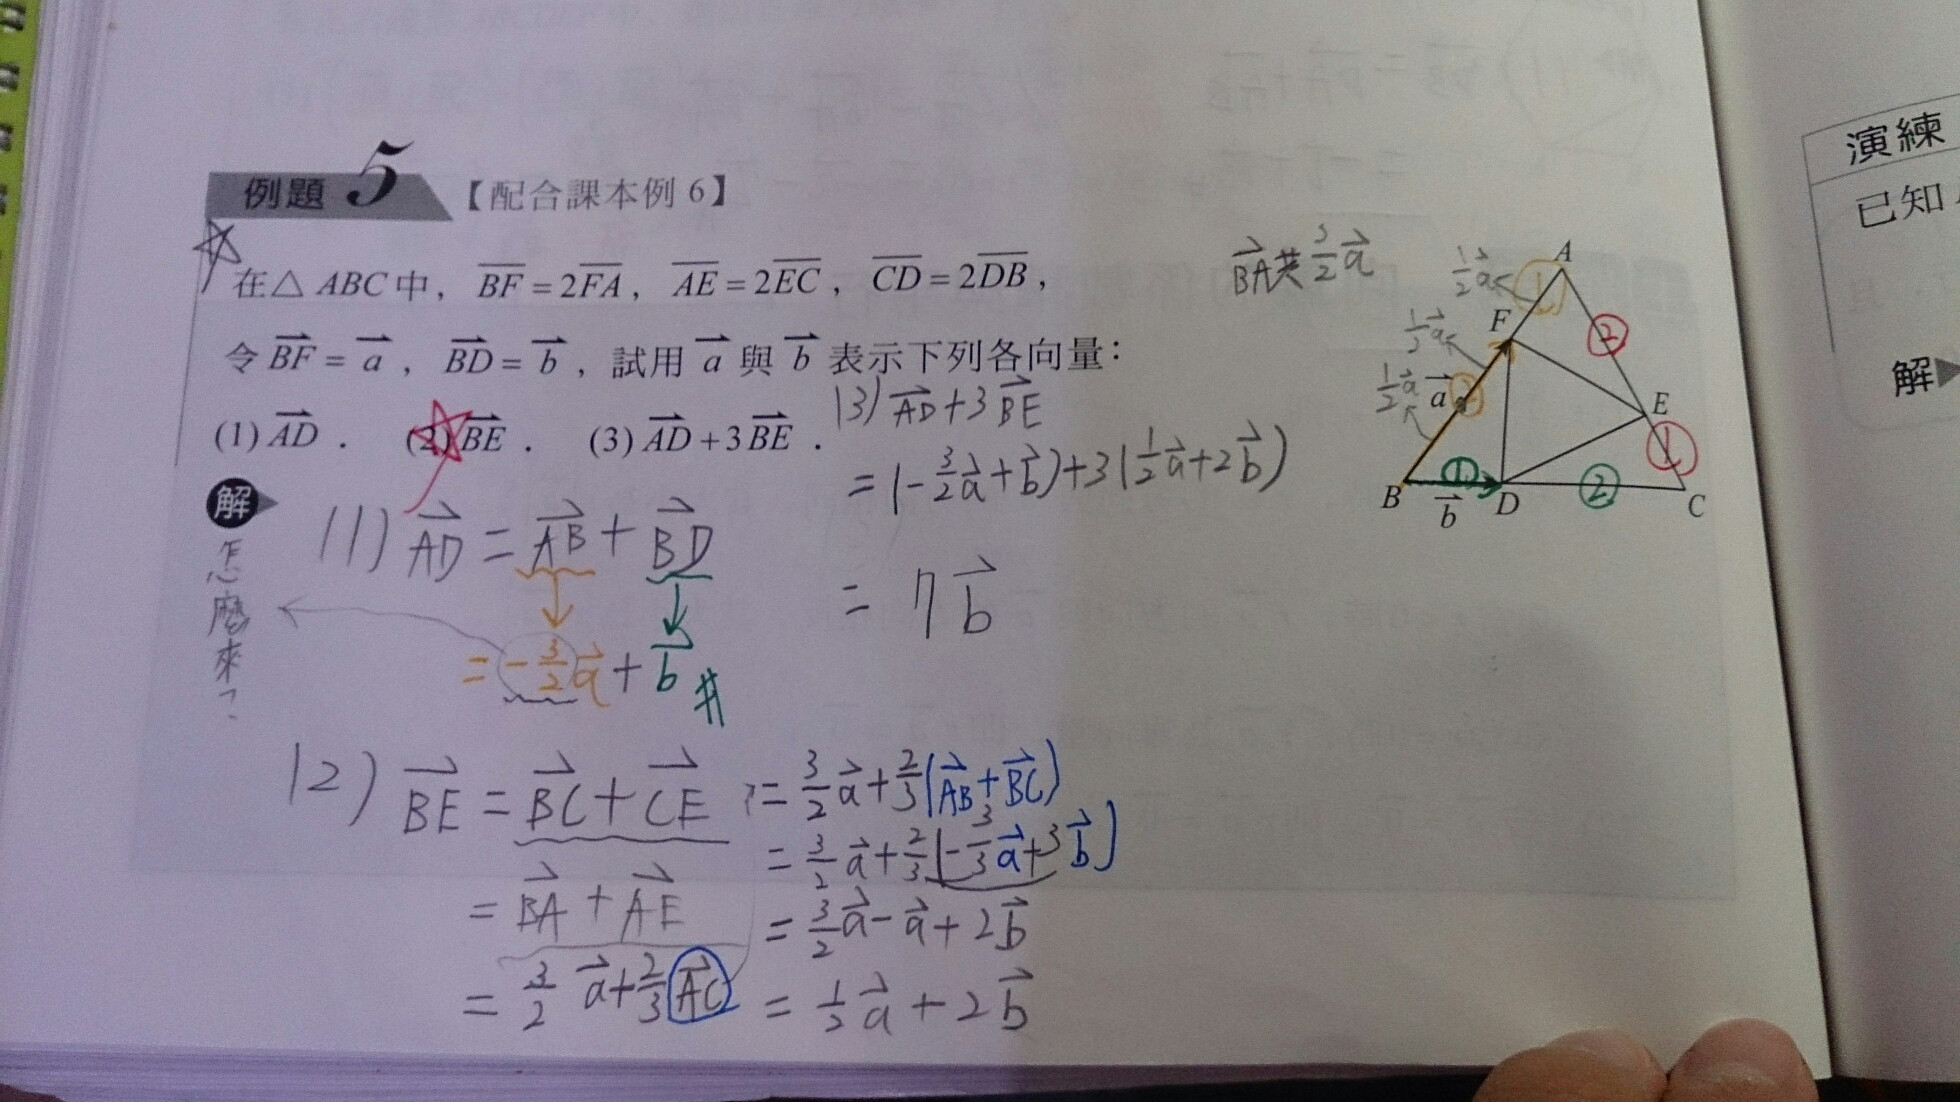 例題 5 【配合課本例 6】
在△ ABC 中， BF = 2FA， AE = 2EC， CD = 2DB，
令 BF = a， BD = b，試用 a 與 b 表示下列各向量：
(1) AD． (2) BE． (3) AD + 3BE．
解
怎麼來？
(1) AD = AB + BD
= -3/2 a + b #
(2) BE = BC + CE
= BA + AE
= 3/2 a + 2/3 AC
= 3/2 a + 2/3 (AB + BC)
= 3/2 a + 2/3 (-3/3 a + 3 b)
= 3/2 a - a + 2 b
= 1/2 a + 2 b
(3) AD + 3 BE
= (-3/2 a + b) + 3 (1/2 a + 2 b)
= 7 b
BA共 3/2 a
A
1/2 a
1
F
2
1/2 a
1/2 a
a
2
E
1
B
1
D
2
C
b
演練
已知
解